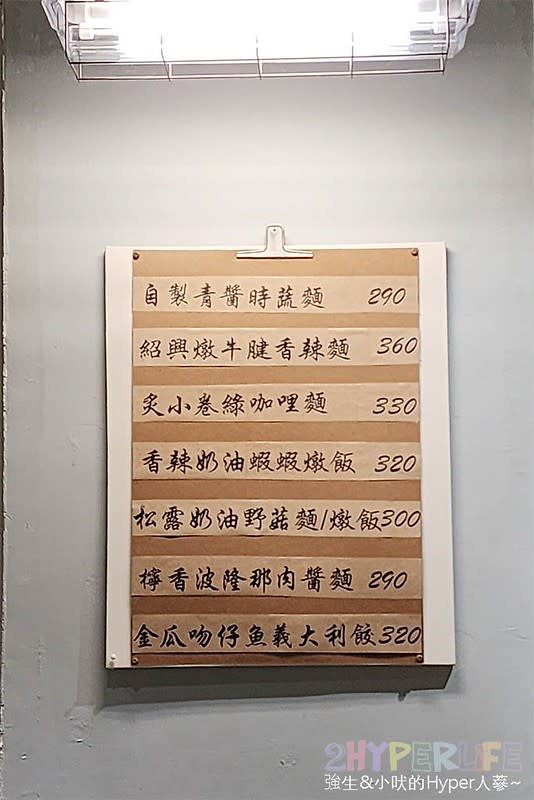 自製青醬時蔬麵 290
紹興燉牛腱香辣麵 360
炙小卷綠咖哩麵 330
香辣奶油蝦蝦燉飯 320
松露奶油野菇麵/燉飯300
檸香波隆那肉醬麵 290
金瓜吻仔魚義大利餃320
2HYPERLIFE
強生&小吠的Hyper人蔘~